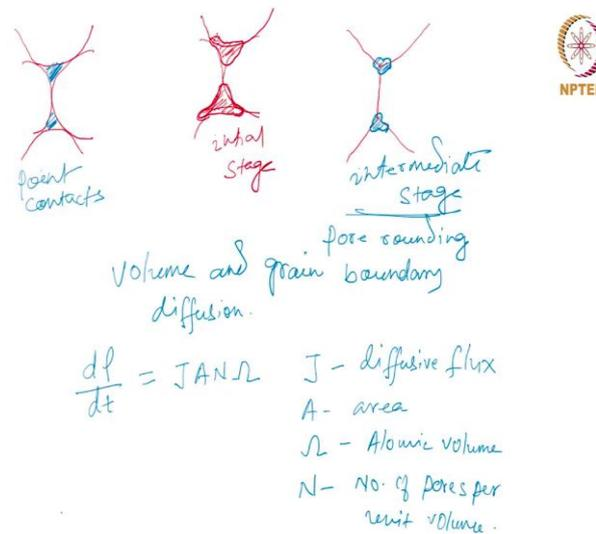 NPTEL
point
contacts
intial
stage
intermediate
stage
pore rounding
volume and grain boundary
diffusion.
dρ/dt = JANΩ
J - diffusive flux
A - area
Ω - Atomic volume
N - No. of pores per
unit volume.